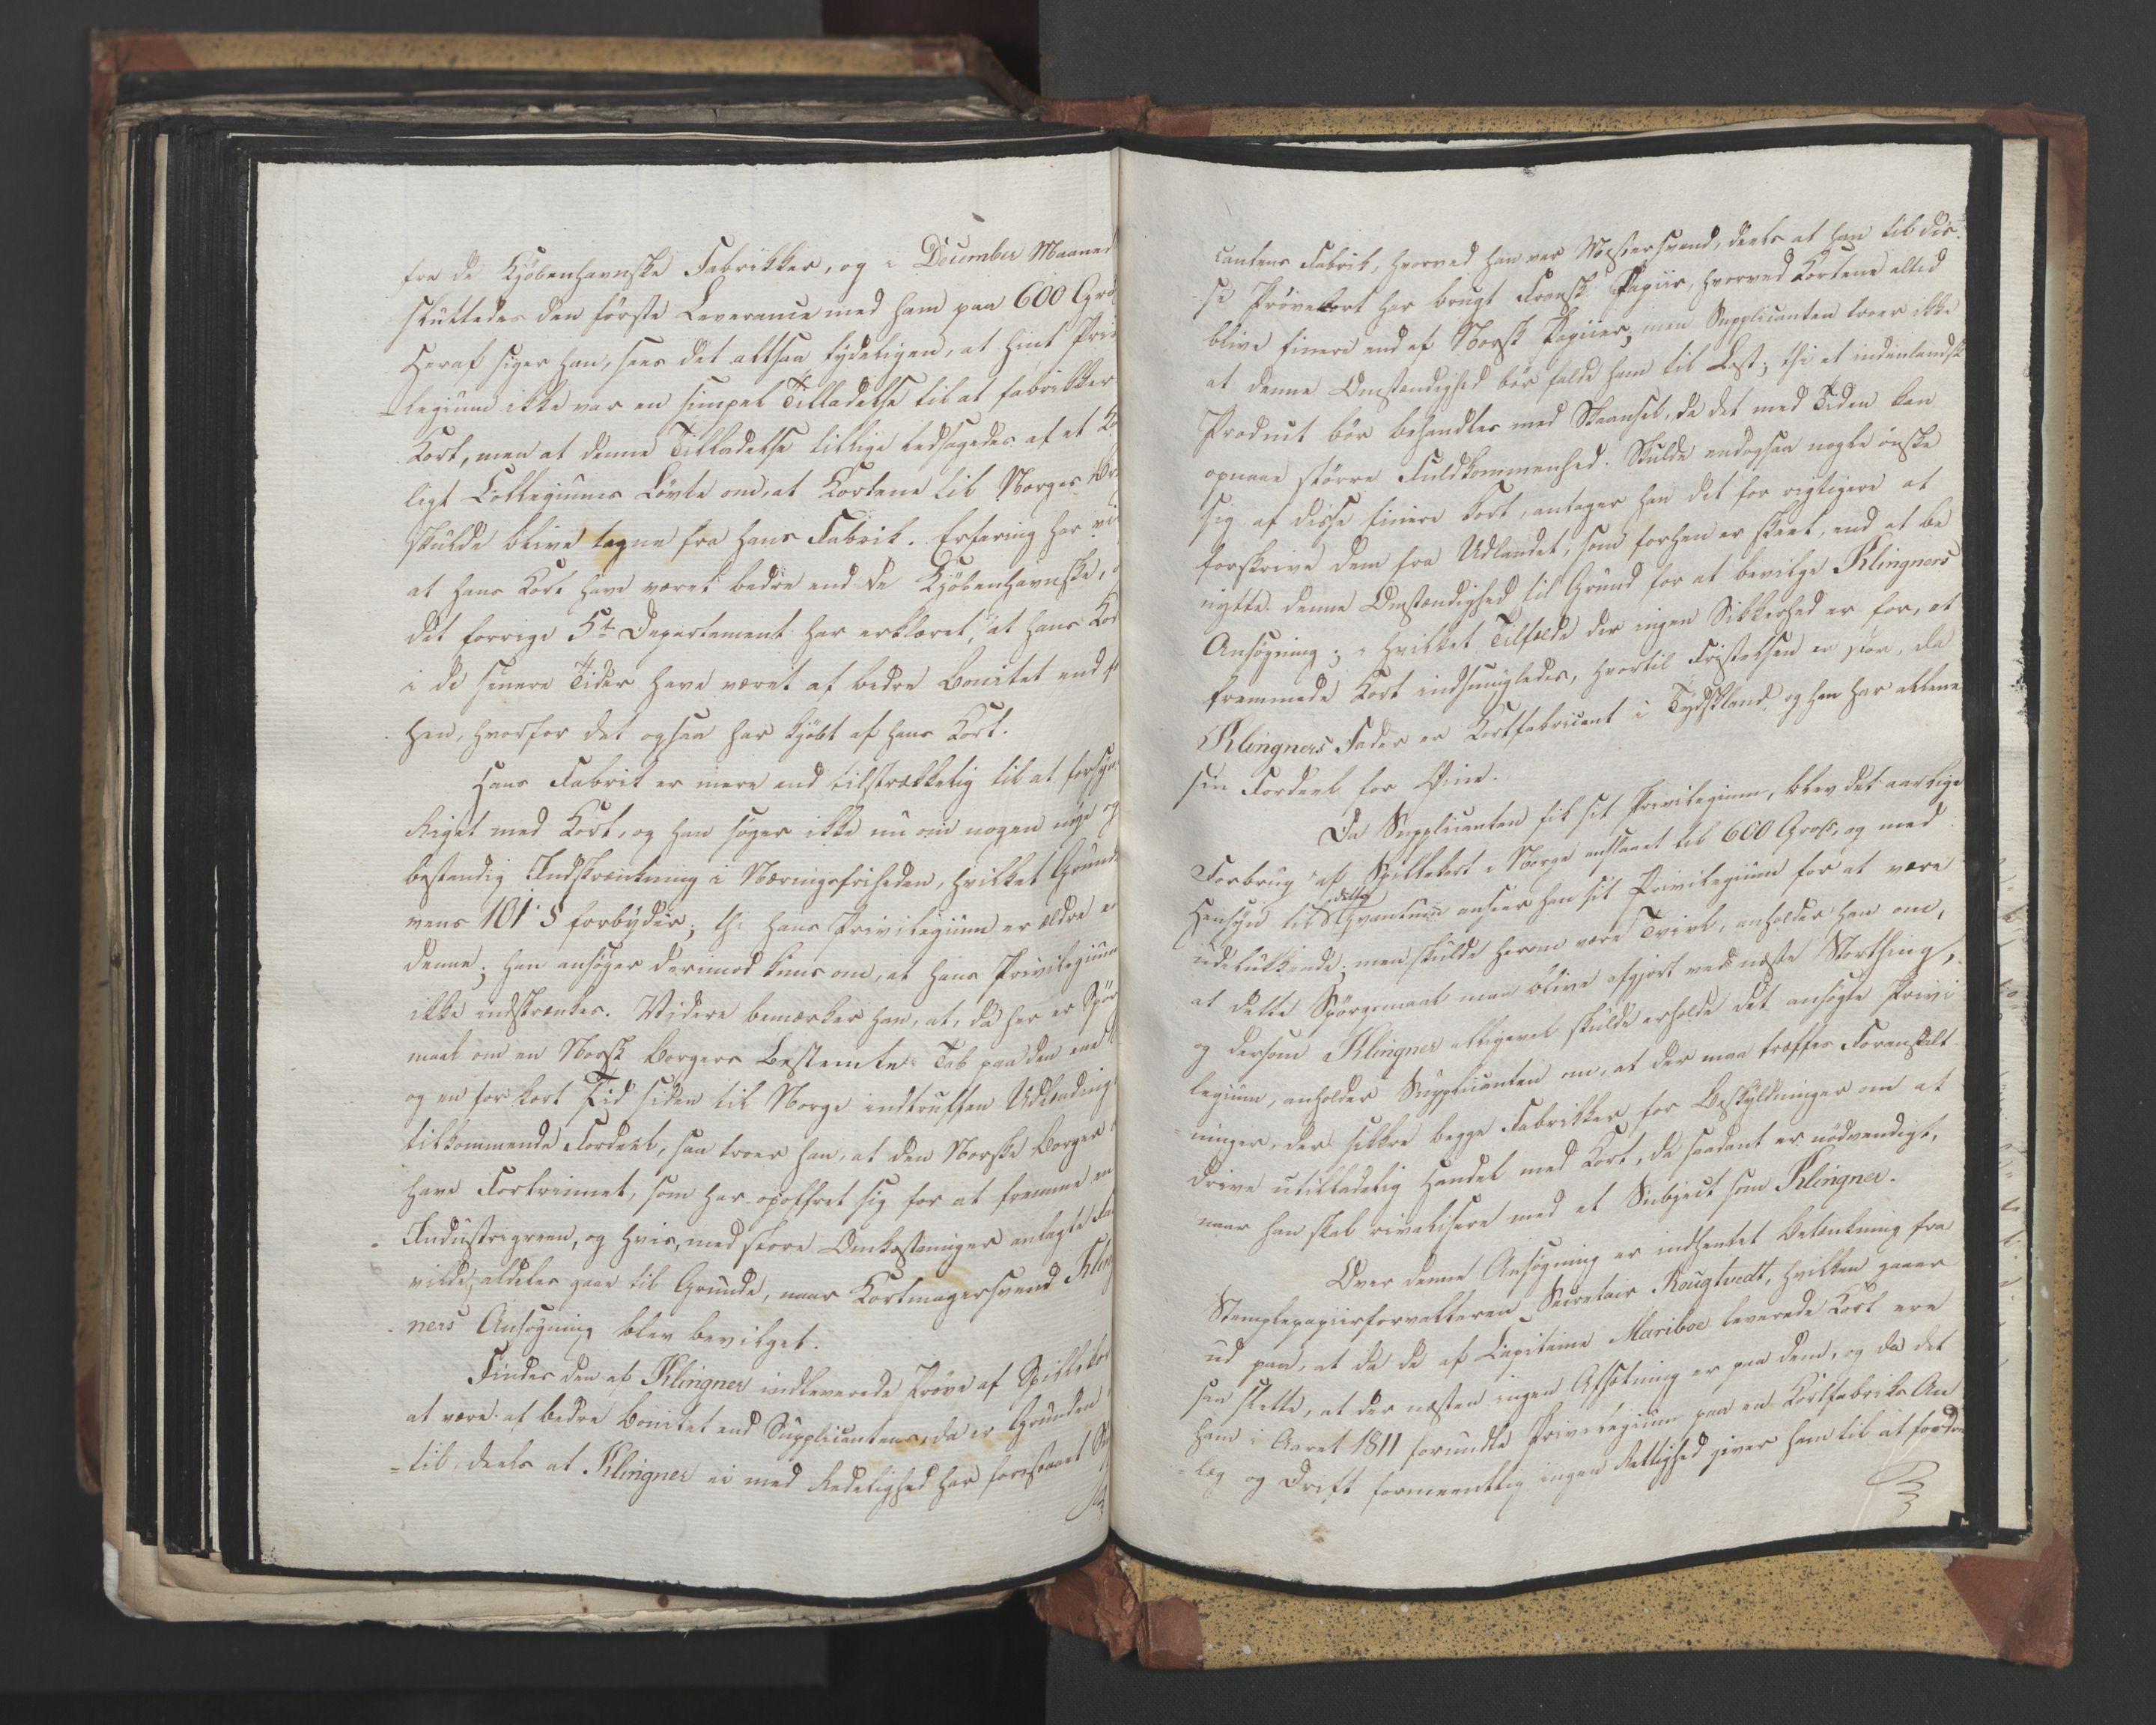 fra de Kjøbenhavnske Fabrikker, og i December Maaned
sluttedes den første Leverance med ham paa 600 Gro
Heraf siger han, sees det altsaa tydeligen, at hint Pri
legium ikke var en simpel Tilladelse til at fabrikker
Kort, men at denne Tilladelse tillige ledsagedes af et
ligt Collegiums Løvte om, at Kortene til Norges
skulde blive tagne fra hans Fabrik. Erfaring har
at hans Kort have været bedre end de Kjøbenhavnske,
det forrige 5te Departement har erklæret, at hans Kor
i de senere Tider have været af bedre Bonitet end
hen, hvorfor det ogsaa har kjøbt af hans Kort.
Hans Fabrik er mere end tilstrækkelig til at forsyn
Riget med Kort, og han søger ikke nu om nogen nye og
bestandig Indskrænkning i Næringsfriheden, hvilket Grund
vens 101 § forbyder; thi hans Privilegium er ældre
denne; han ansøger derimod kuns om, at hans Privilegium
ikke indskrænkes. Videre bemærker han, at, da her er Spør
maal om en Norsk Borgers bestemte Tab paa den ene
og en for kort Tid siden til Norge indtruffen Udlænding
tilkommende Fordeel, saa troer han, at den Norske Borger
have Fortrinnet, som har opoffret sig for at fremme en
Industrigreen, og hvis, med store Omkostninger anlagte Fa
vilde aldeles gaae til Grunde, naar Kortmagersvend Kling
ners Ansøgning blev bevilget.
Findes den af Klingner indleverede Prøve af Spillekor
at være af bedre Bonitet end Supplicantens, da er Grunden
til, deels at Klingner ei med Redelighed har forestaaet
cantens Fabrik, hvorved han var Mestersvend, deels at han til dis
se Prøvekort har brugt Fransk Papiir, hvorved Kortene altid
blive finere end af Norsk Papiir; men Supplicanten troer ikke
at denne Omstændighed bør falde ham til Last; thi et indenlandsk
Product bør behandles med Skaansel, da det med Tiden kan
opnaae større Fuldkommenhed. Skulde endogsaa nogle ønske
sig af disse finere Kort, antager han det for rigtigere at
forskrive dem fra Udlandet, som forhen er skeet, end at be
nytte denne Omstændighed til Grund for at bevilge Klingners
Ansøgning; i hvilket Tilfælde der ingen Sikkerhed er for, at
fremmede Kort indsmugledes, hvortil Fristelsen er stor, da
Klingners Fader er Kortfabricant i Tydskland, og han har allene
sin Fordeel for Øine.
Da Supplicanten fik sit Privilegium, blev det aarlige
Forbrug af Spillekort i Norge anslaaet til 600 Gross, og med
Hensyn til dette Qvantum anseer han sit Privilegium for at være
udelukkende; men skulde herom være Tvivl, anholder han om,
at dette Spørgsmaal maa blive afgjort ved næste Storthing,
og dersom Klingner alligevel skulde erholde det ansøgte Privi
legium, anholder Supplicanten om, at der maa træffes Foranstalt
ninger, der sikkre begge Fabrikker for Beskyldninger om at
drive utilladelig Handel med Kort, da saadant er nødvendigt,
naar han skal rivalisere med et Subject som Klingner.
Over denne Ansøgning er indhentet Betænkning fra
Stemplepapiirforvalteren Secretair Rougtvedt, hvilken gaaer
ud paa, at da de af Capitaine Mariboe leverede Kort ere
saa slette, at der næsten ingen Afsætning er paa dem, og da det
ham i Aaret 1811 forundte Privilegium paa en Kortfabriks An
læg og Drift formeentlig ingen Rettighed giver ham til at fordre